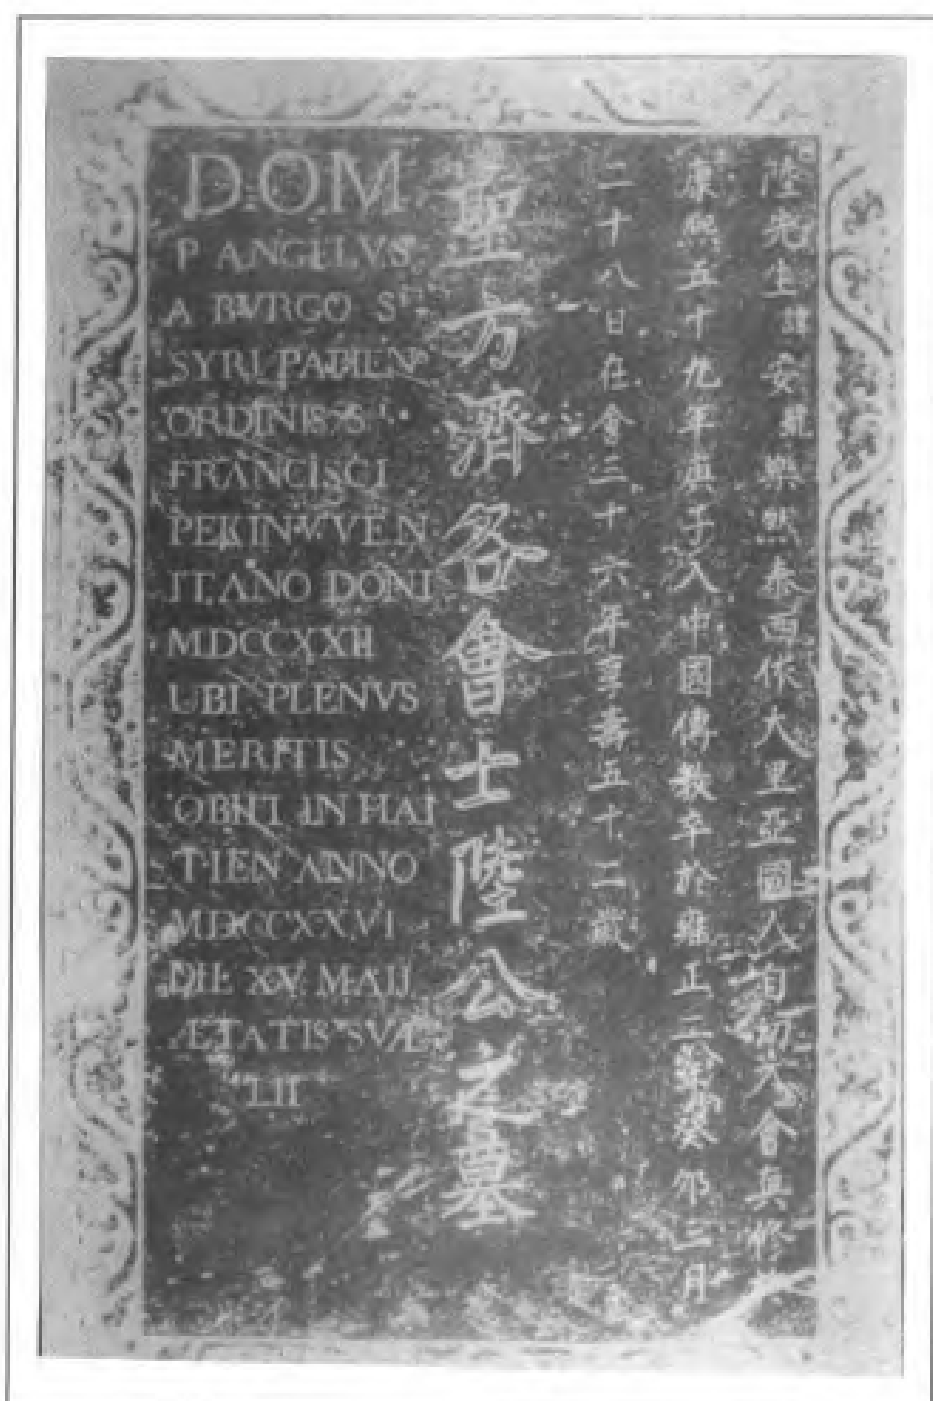 D.O.M
P ANGELVS
A BVRGO S^TI
SYRI PAPIEN^S
ORDINIS S^TI
FRANCISCI
PEKINVVEN
IT.ANO DONI
MDCCXXII
UBI PLENVS
MERITIS
OBIIT IN HAI
TIEN ANNO
MDCCXXVI
DIE XV MAIJ
ÆTATIS SVÆ
LII
聖方濟各會士陸公之墓
陸先生諱安龍樂然泰西依大里亞國人自幼入會真修
康熙五十九年庚子入中國傳教卒於雍正三癸卯三月
二十八日在會三十六年享壽五十二歲